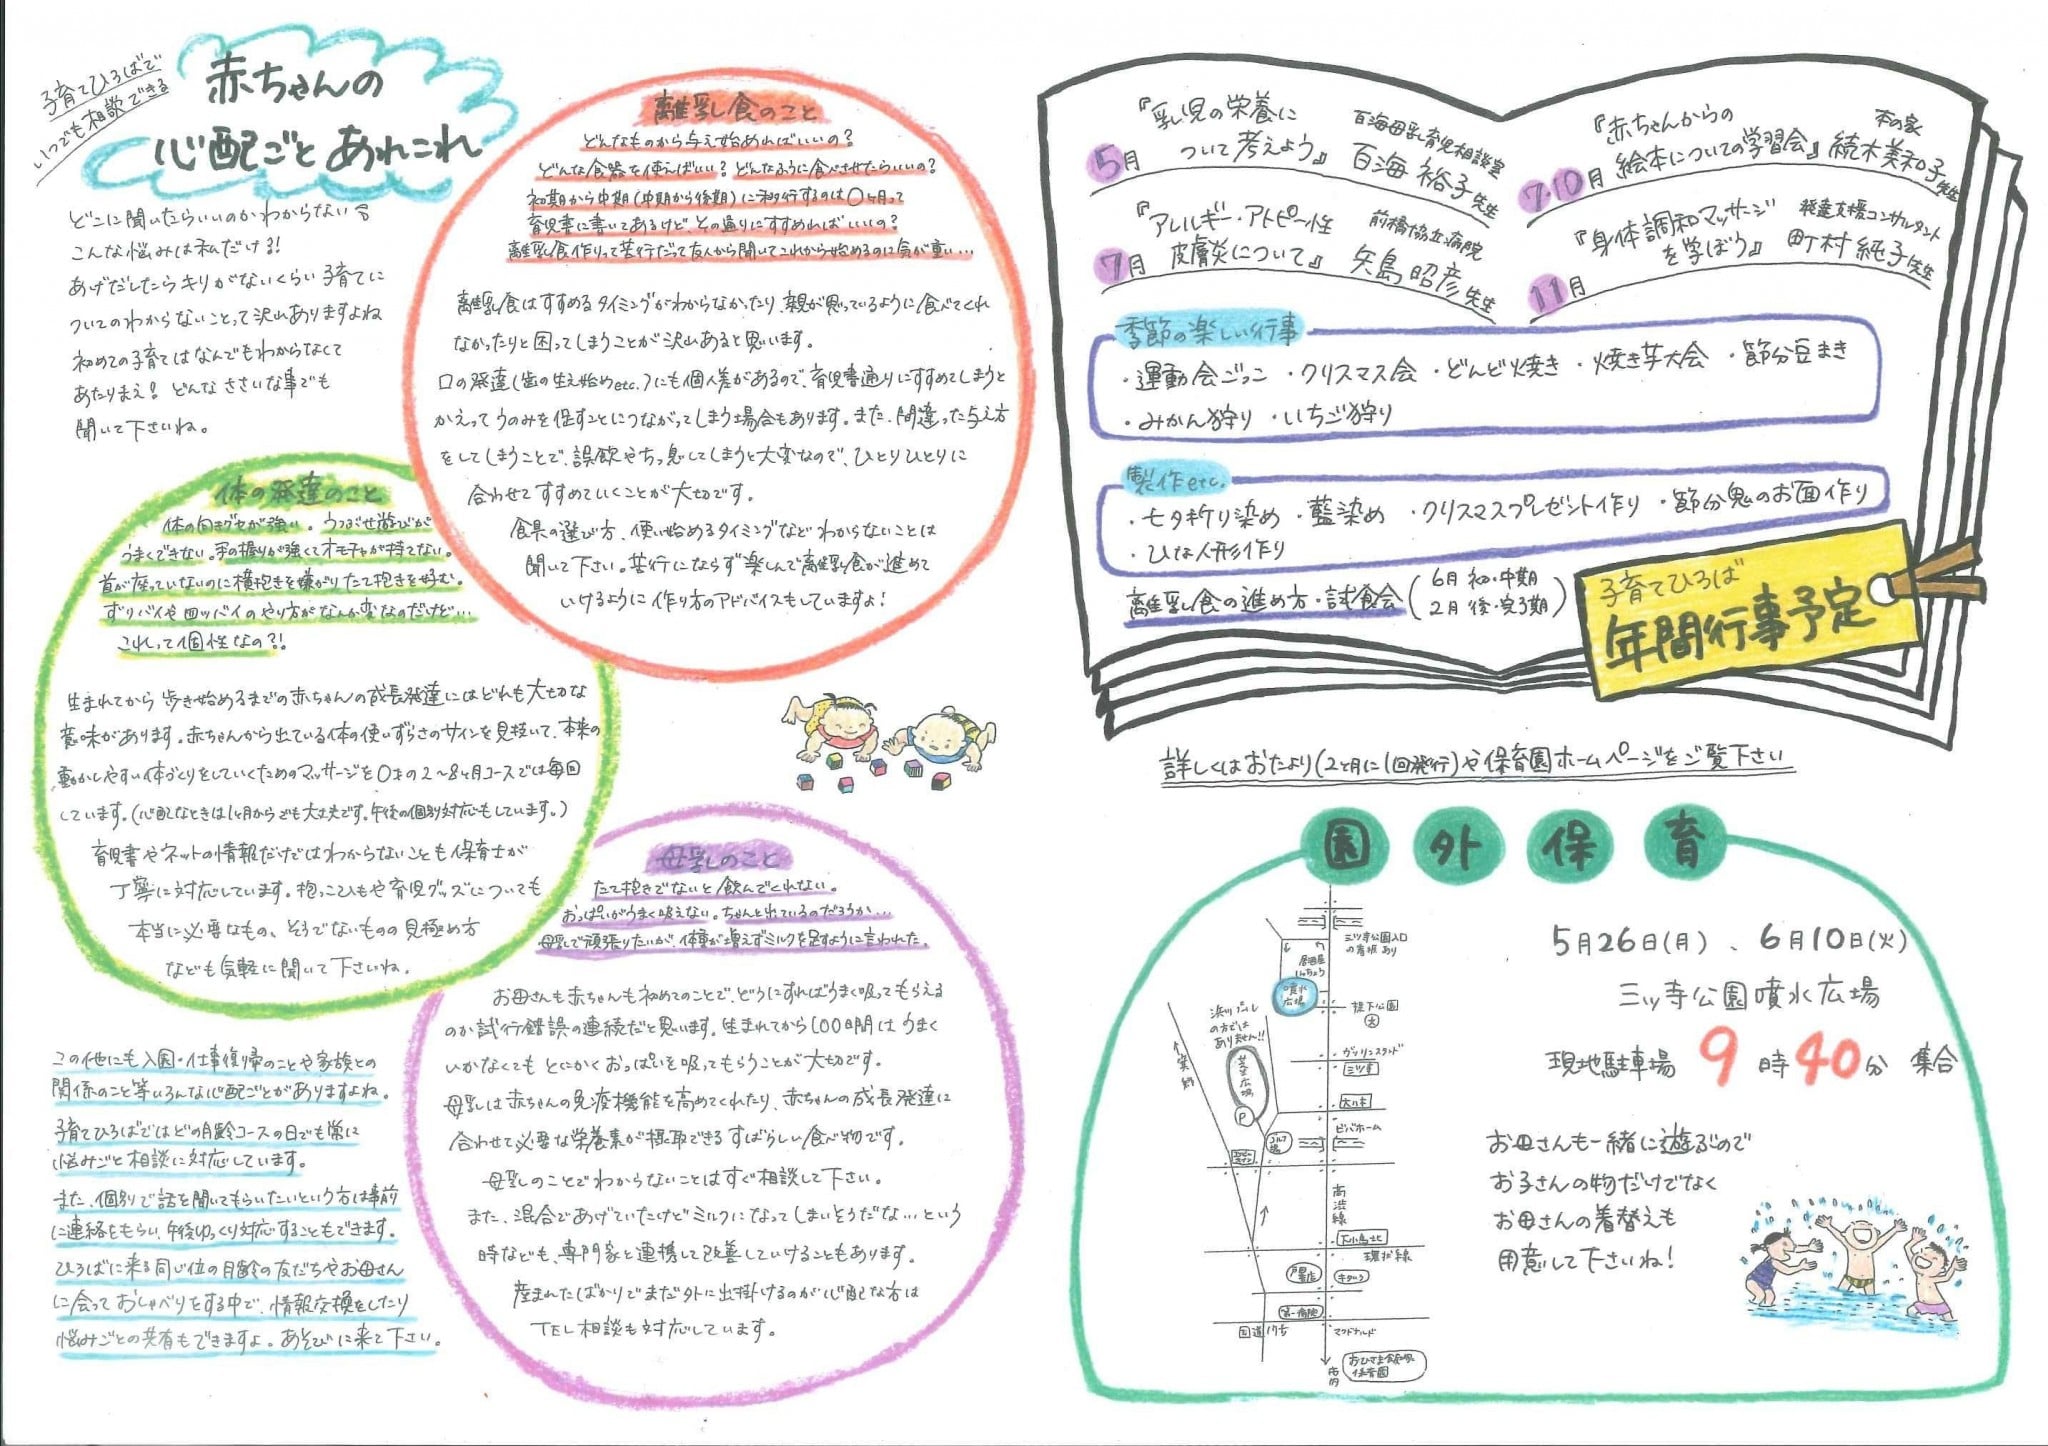 子育てひろばで
いつでも相談できる
赤ちゃんの
心配ごと あれこれ
どこに聞いたらいいのかわからない
こんな悩みは私だけ?!
あげだしたらキリがないくらい子育てに
ついてのわからないことって沢山ありますよね
初めての子育てはなんでもわからなくて
あたりまえ! どんなささいな事でも
聞いて下さいね。
離乳食のこと
どんなものから与え始めればいいの?
どんな食器を使えばいい? どんなふうに食べさせたらいいの?
初期から中期(中期から後期)に移行するのは〇ヶ月って
育児書に書いてあるけど、その通りにすすめればいいの?
離乳食作りって苦行だって友人から聞いてこれから始めるのに気が重い…
離乳食はすすめるタイミングがわからなかったり、親が思っているように食べてくれ
なかったりと困ってしまうことが沢山あると思います。
口の発達(歯の生え始めetc.)にも個人差があるので、育児書通りにすすめてしまうと
かえってうのみを促すことにつながってしまう場合もあります。また、間違った与え方
をしてしまうことで、誤飲やちっ息してしまうと大変なので、ひとりひとりに
合わせてすすめていくことが大切です。
食具の選び方、使い始めるタイミングなどわからないことは
聞いて下さい。苦行にならず楽しんで離乳食が進めて
いけるように作り方のアドバイスもしていますよ!
体の発達のこと
体の向きグセが強い。うつぶせ遊びが
うまくできない。手の握りが強くてオモチャが持てない。
首が座っていないのに横抱きを嫌がりたて抱きを好む。
ずりバイや四ツバイのやり方がなんか変なのだけど…
これって個性なの?!
生まれてから歩き始めるまでの赤ちゃんの成長発達にはどれも大切な
意味があります。赤ちゃんから出ている体の使いずらさのサインを見抜いて、本来の
動かしやすい体づくりをしていくためのマッサージを0才の2〜8ヶ月コースでは毎回
しています。(心配なときは1ヶ月からでも大丈夫です。午後の個別対応もしています。)
育児書やネットの情報だけではわからないことも保育士が
丁寧に対応しています。抱っこひもや育児グッズについても
本当に必要なもの、そうでないものの見極め方
なども気軽に聞いて下さいね。
母乳のこと
たて抱きでないと飲んでくれない。
おっぱいがうまく吸えない。ちゃんと出ているのだろうか…
母乳で頑張りたいが、体重が増えずミルクを足すように言われた。
お母さんも赤ちゃんも初めてのことで、どうにすればうまく吸ってもらえる
のか試行錯誤の連続だと思います。生まれてから100日間はうまく
いかなくてもとにかくおっぱいを吸ってもらうことが大切です。
母乳は赤ちゃんの免疫機能を高めてくれたり、赤ちゃんの成長発達に
合わせて必要な栄養素が摂取できるすばらしい食べ物です。
母乳のことでわからないことはすぐ相談して下さい。
また、混合であげていたけどミルクになってしまいそうだな…という
時なども、専門家と連携して改善していけることもあります。
産まれたばかりでまだ外に出掛けるのが心配な方は
TEL相談も対応しています。
この他にも入園・仕事復帰のことや家族との
関係のこと等いろんな心配ごとがありますよね。
子育てひろばではどの月齢コースの日でも常に
悩みごと相談に対応しています。
また、個別で話を聞いてもらいたいという方は事前
に連絡をもらい、午後ゆっくり対応することもできます。
ひろばに来る同じ位の月齢の友だちやお母さん
に会っておしゃべりをする中で、情報交換をしたり
悩みごとの共有もできますよ。あそびに来て下さい。
5月
『乳児の栄養に
ついて考えよう』
百海母乳育児相談室
百海 裕子先生
7月
『アレルギー・アトピー性
皮膚炎について』
前橋協立病院
矢島 昭彦先生
7・10月
『赤ちゃんからの
絵本についての学習会』
本の家
続木美和子先生
11月
『身体調和マッサージ
を学ぼう』
発達支援コンサルタント
町村 純子先生
季節の楽しい行事
・運動会ごっこ ・クリスマス会 ・どんど焼き ・焼き芋大会 ・節分豆まき
・みかん狩り ・いちご狩り
製作etc.
・七夕折り染め ・藍染め ・クリスマスプレゼント作り ・節分鬼のお面作り
・ひな人形作り
離乳食の進め方・試食会
(6月 初・中期
2月 後・完了期)
子育てひろば
年間行事予定
詳しくはおたより(2ヶ月に1回発行)や保育園ホームページをご覧下さい
園外保育
5月26日(月)、6月10日(火)
三ッ寺公園噴水広場
現地駐車場 9時40分 集合
お母さんも一緒に遊ぶので
お子さんの物だけでなく
お母さんの着替えも
用意して下さいね!
三ッ寺公園入口
の看板あり
居酒屋
噴水
広場
堤下公園
浜川プール
の方では
ありません!!
ガソリンスタンド
三ツ寺
芝生広場
P
ビバホーム
高渋線
下小鳥北
環状線
キタムラ
第一病院
国道17号
マクドナルド
保育園